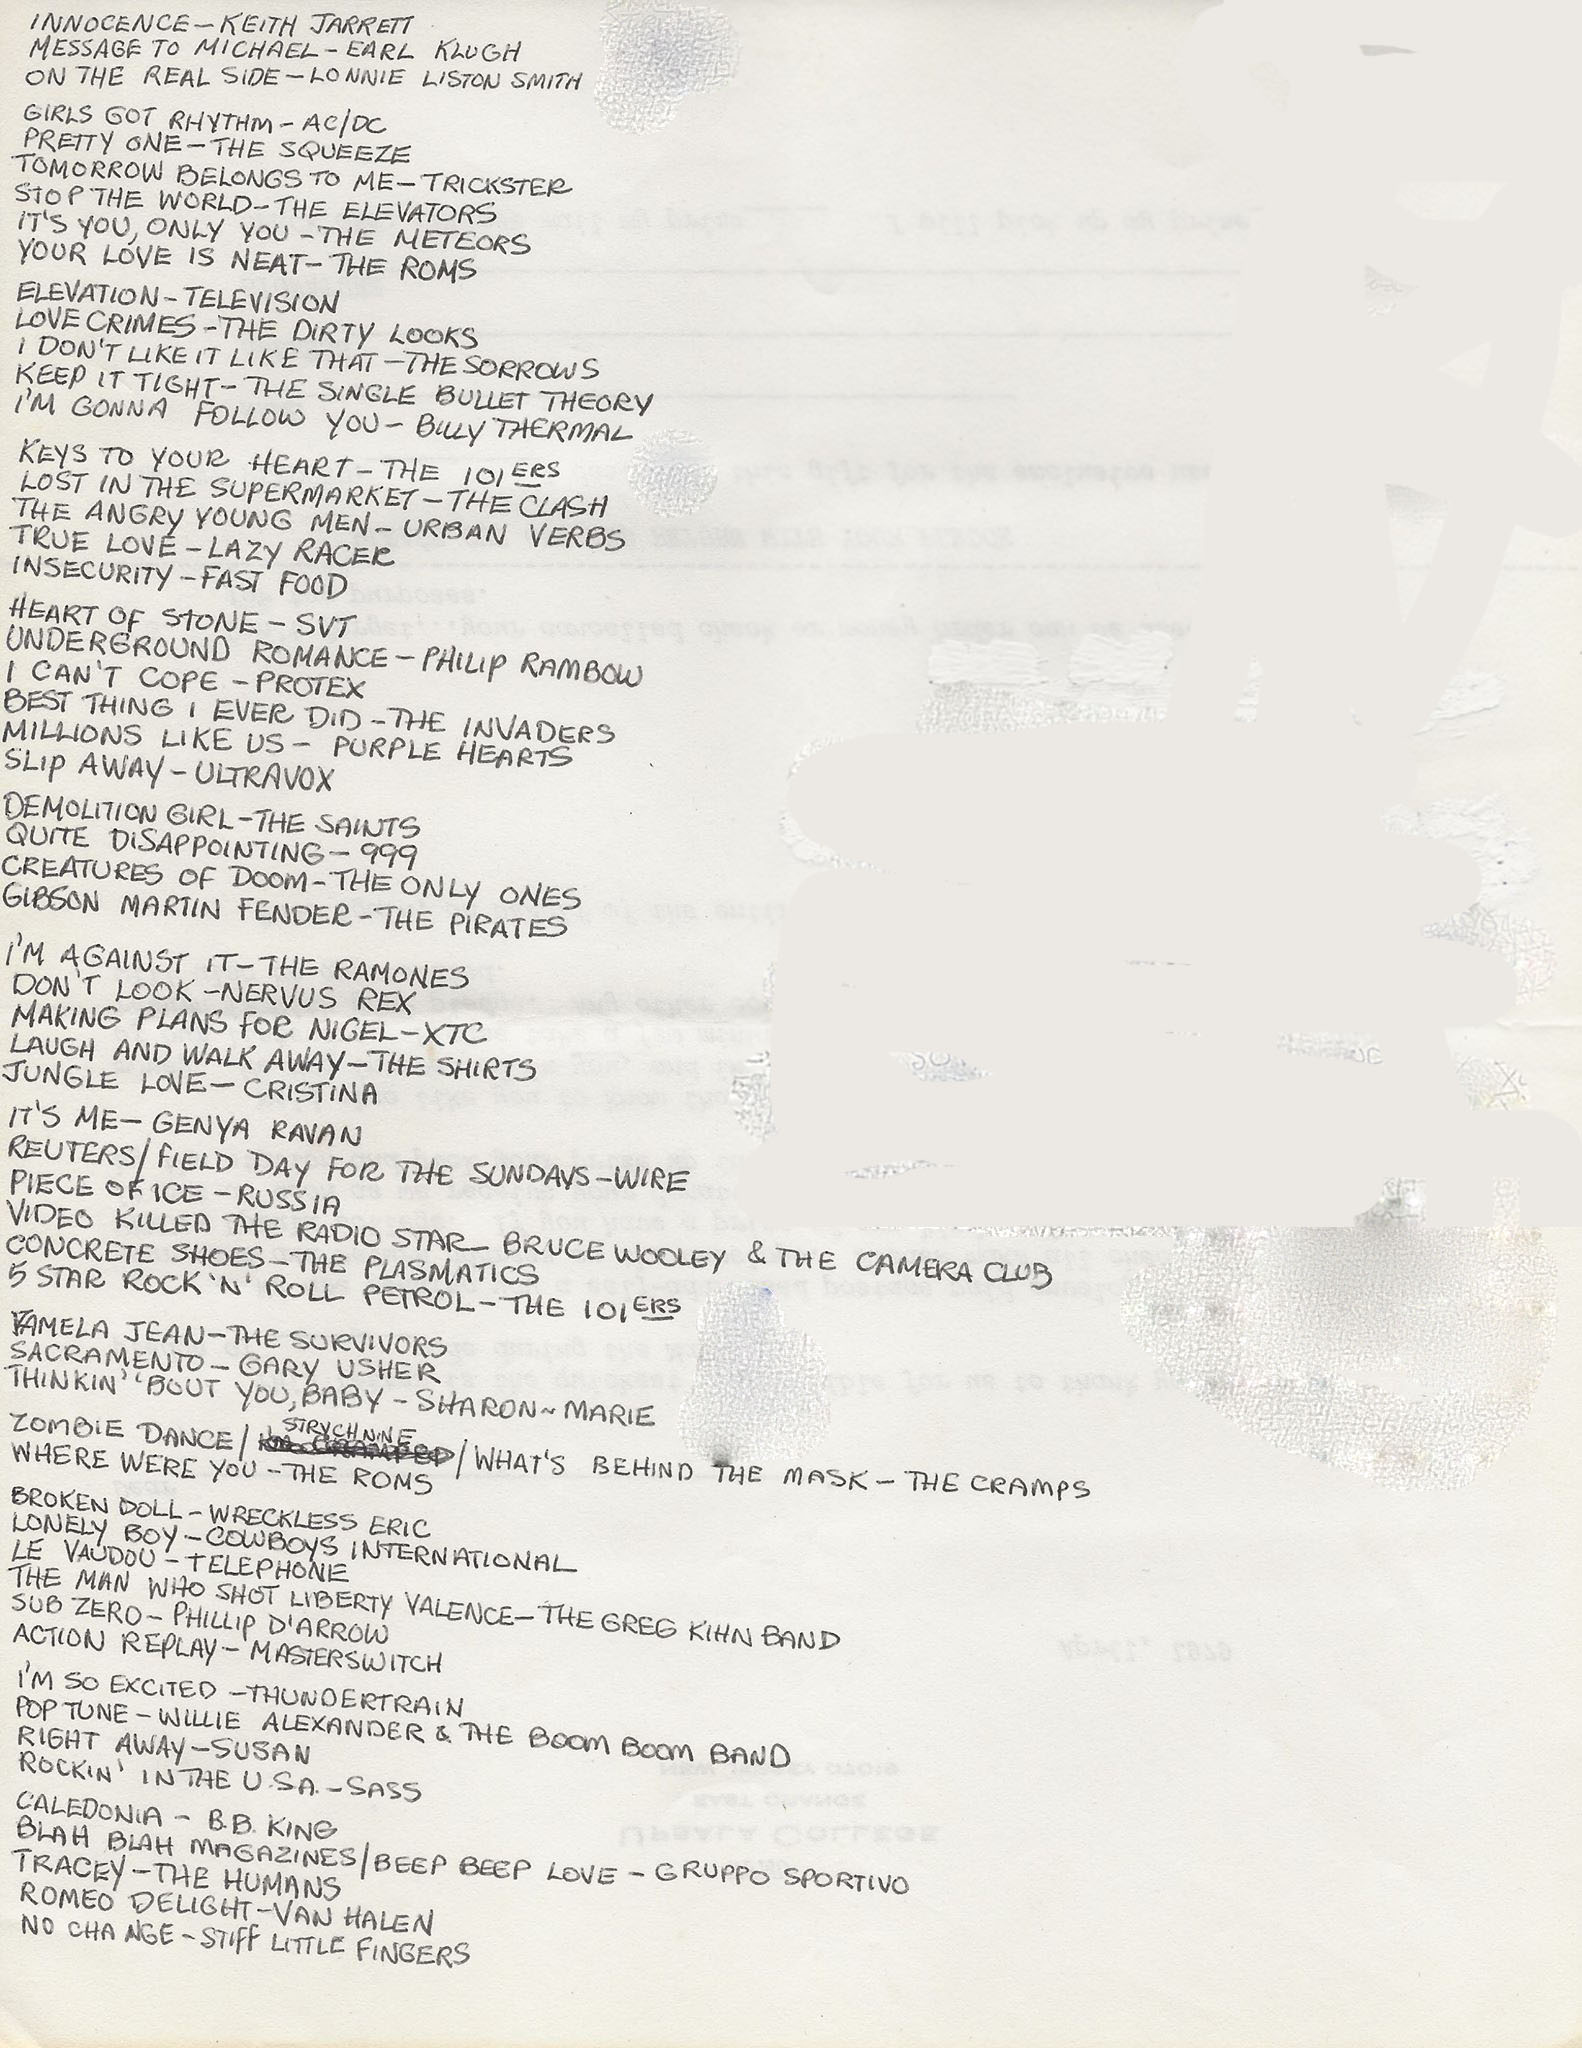 INNOCENCE – KEITH JARRETT
MESSAGE TO MICHAEL – EARL KLUGH
ON THE REAL SIDE – LONNIE LISTON SMITH
GIRLS GOT RHYTHM – AC/DC
PRETTY ONE – THE SQUEEZE
TOMORROW BELONGS TO ME – TRICKSTER
STOP THE WORLD – THE ELEVATORS
IT'S YOU, ONLY YOU – THE METEORS
YOUR LOVE IS NEAT – THE ROMS
ELEVATION – TELEVISION
LOVE CRIMES – THE DIRTY LOOKS
I DON'T LIKE IT LIKE THAT – THE SORROWS
KEEP IT TIGHT – THE SINGLE BULLET THEORY
I'M GONNA FOLLOW YOU – BILLY THERMAL
KEYS TO YOUR HEART – THE 101ERS
LOST IN THE SUPERMARKET – THE CLASH
THE ANGRY YOUNG MEN – URBAN VERBS
TRUE LOVE – LAZY RACER
INSECURITY – FAST FOOD
HEART OF STONE – SVT
UNDERGROUND ROMANCE – PHILIP RAMBOW
I CAN'T COPE – PROTEX
BEST THING I EVER DID – THE INVADERS
MILLIONS LIKE US – PURPLE HEARTS
SLIP AWAY – ULTRAVOX
DEMOLITION GIRL – THE SAINTS
QUITE DISAPPOINTING – 999
CREATURES OF DOOM – THE ONLY ONES
GIBSON MARTIN FENDER – THE PIRATES
I'M AGAINST IT – THE RAMONES
DON'T LOOK – NERVUS REX
MAKING PLANS FOR NIGEL – XTC
LAUGH AND WALK AWAY – THE SHIRTS
JUNGLE LOVE – CRISTINA
IT'S ME – GENYA RAVAN
REUTERS/FIELD DAY FOR THE SUNDAYS – WIRE
PIECE OF ICE – RUSSIA
VIDEO KILLED THE RADIO STAR – BRUCE WOOLEY & THE CAMERA CLUB
CONCRETE SHOES – THE PLASMATICS
5 STAR ROCK 'N' ROLL PETROL – THE 101ERS
PAMELA JEAN – THE SURVIVORS
SACRAMENTO – GARY USHER
THINKIN' 'BOUT YOU, BABY – SHARON~MARIE
ZOMBIE DANCE/STRYCHNINE/WHAT'S BEHIND THE MASK – THE CRAMPS
WHERE WERE YOU – THE ROMS
BROKEN DOLL – WRECKLESS ERIC
LONELY BOY – COWBOYS INTERNATIONAL
LE VAUDOU – TELEPHONE
THE MAN WHO SHOT LIBERTY VALENCE – THE GREG KIHN BAND
SUB ZERO – PHILLIP D'ARROW
ACTION REPLAY – MASTERSWITCH
I'M SO EXCITED – THUNDERTRAIN
POP TUNE – WILLIE ALEXANDER & THE BOOM BOOM BAND
RIGHT AWAY – SUSAN
ROCKIN' IN THE U.S.A. – SASS
CALEDONIA – B.B. KING
BLAH BLAH MAGAZINES/BEEP BEEP LOVE – GRUPPO SPORTIVO
TRACEY – THE HUMANS
ROMEO DELIGHT – VAN HALEN
NO CHANGE – STIFF LITTLE FINGERS